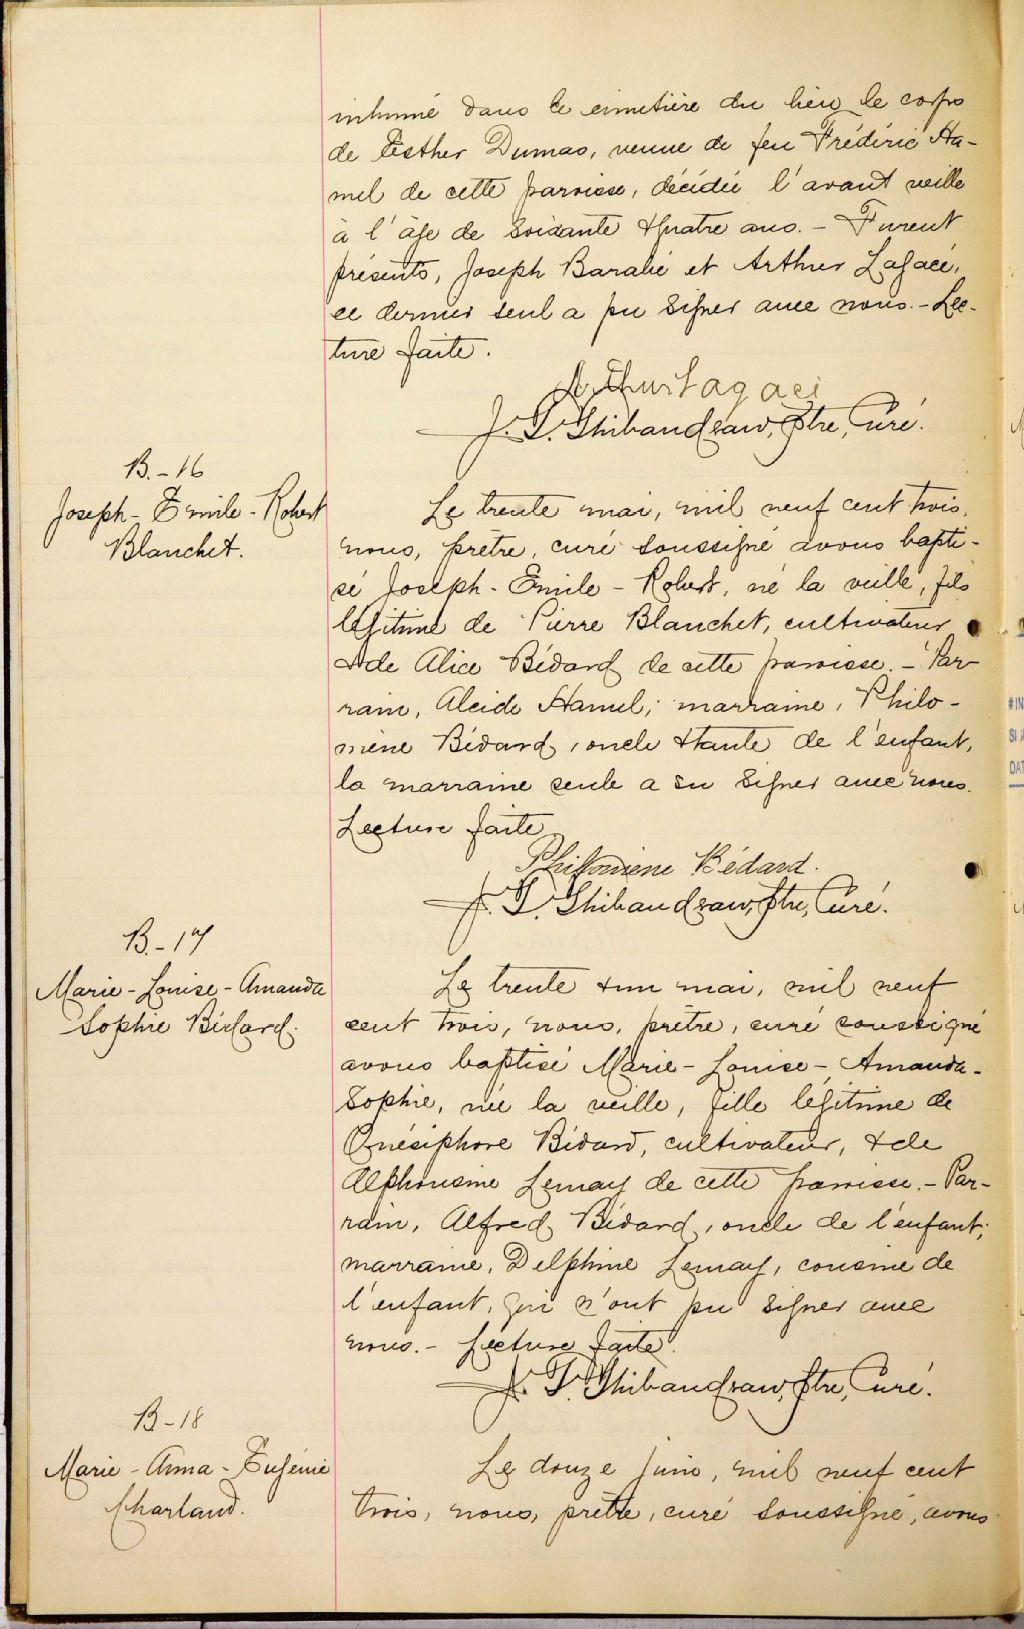 inhumé dans le cimetière du lieu le corps
de Esther Dumas, veuve de feu Frédéric Ha-
mel de cette paroisse, décédée l'avant veille
à l'âge de soixante & quatre ans. - Furent
présents, Joseph Barabé et Arthur Lagacé,
ce dernier seul a pu signer avec nous. - Lec-
ture faite.
Arthur Lagacé
J. T. Thibaudeau, Ptre, Curé.
B. - 16
Joseph - Emile - Robert
Blanchet.
Le trente mai, mil neuf cent trois,
nous, prêtre, curé soussigné avons bapti-
sé Joseph - Emile - Robert, né la veille, fils
légitime de Pierre Blanchet, cultivateur
& de Alice Bédard de cette paroisse. - Par-
rain, Alcide Hamel; marraine, Philo-
mène Bédard, oncle & tante de l'enfant,
la marraine seule a su signer avec nous.
Lecture faite
Philomène Bédard.
J. T. Thibaudeau, Ptre, Curé.
B. - 17
Marie - Louise - Amanda
Sophie Bédard.
Le trente & un mai, mil neuf
cent trois, nous, prêtre, curé soussigné
avons baptisé Marie - Louise - Amanda -
Sophie, née la veille, fille légitime de
Onésiphore Bédard, cultivateur, & de
Alphonsine Lemay de cette paroisse. - Par-
rain, Alfred Bédard, oncle de l'enfant;
marraine, Delphine Lemay, cousine de
l'enfant, qui n'ont pu signer avec
nous. - Lecture faite.
J. T. Thibaudeau, Ptre, Curé.
B - 18
Marie - Anna - Eugénie
Charland.
Le douze juin, mil neuf cent
trois, nous, prêtre, curé soussigné, avons